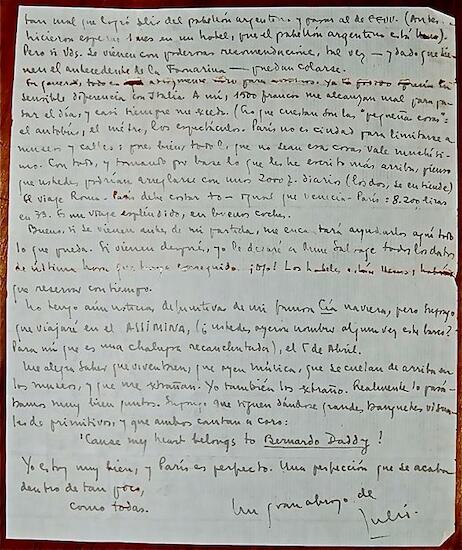 tan mal que logré salir del pabellón argentino y pasar al de EEUU. (Antes
hicieron esperar 1 mes en un hotel, pues el pabellón argentino está lleno).
Pero si Vds. se vienen con poderosas recomendaciones, tal vez — y dado que tie-
nen el antecedente de la Fornarina — puedan colarse.
En general, todo es
sensible diferencia con Italia. A mí, 1500 francos me alcanzan mal para pa-
sar el día, y casi siempre me excedo. (Lo que cuestan son las "pequeñas cosas":
el autobús, el métro, los espectáculos. París no es ciudad para limitarse a
museos y calles: pues bien, todo lo que no sean esas cosas vale muchísi-
mo. Con todo, y tomando por base lo que les he escrito más arriba, pienso
que ustedes podrían arreglarse con unos 2000 f. diarios (los dos, se entiende)
El viaje Roma-París debe costar lo igual que Venecia-París: 8.200 liras
en 3ª. Es un viaje espléndido, en buenos coches.
Bueno, si se vienen antes de mi partida, me encantará ayudarlos aquí todo
lo que pueda. Si vienen después, yo le dejaré a Anne Salvage todos los datos
de última hora que haya conseguido. ¡Ojo! Los hoteles están llenos,
que reservar con tiempo.
No tengo aún noticias definitivas de mi famosa Cía naviera, pero supongo
que viajaré en el ASSIMINA, (¿ustedes oyeron nombrar alguna vez este barco?
Para mí que es una chalupa recauchutada), el 5 de Abril.
Me alegra saber que viven bien, que oyen música, que se cuelan de arriba en
los museos, y que me extrañan. Yo también los extraño. Realmente lo pasá-
bamos muy bien juntos. Supongo que siguen dándose grandes banquetes visua-
les de primitivos, y que ambos cantan a coro:
'Cause my heart belongs to Bernardo Daddy!
Yo estoy muy bien, y París es perfecto. Una perfección que se acaba
dentro de tan poco,
como todas.
Un gran abrazo de
Julio.